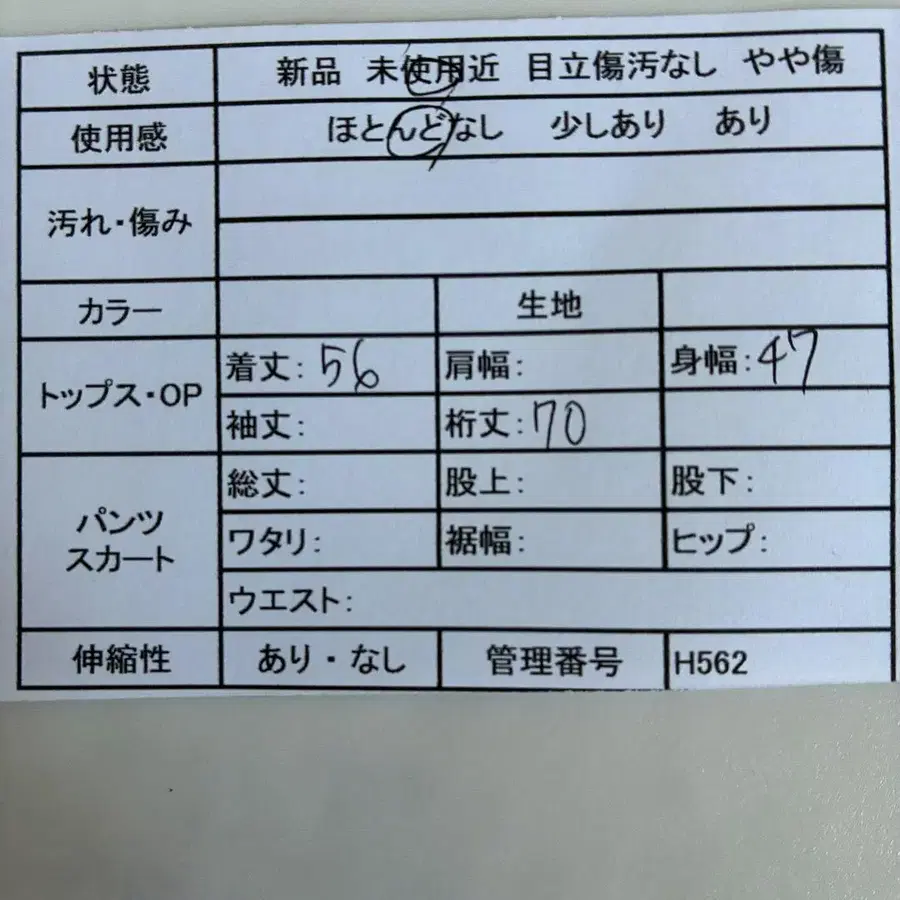 状態 新品 未使用近 目立傷汚なし やや傷
使用感 ほとんどなし 少しあり あり
汚れ・傷み
カラー 生地
トップス・OP 着丈:56 肩幅: 身幅:47
袖丈: 裄丈:70
パンツ
スカート
総丈: 股上: 股下:
ワタリ: 裾幅: ヒップ:
ウエスト:
伸縮性 あり・なし 管理番号 H562